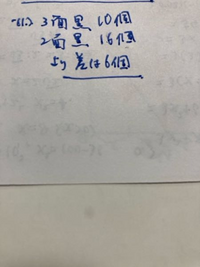 3面黒 10個
2面黒 16個
より 差は6個